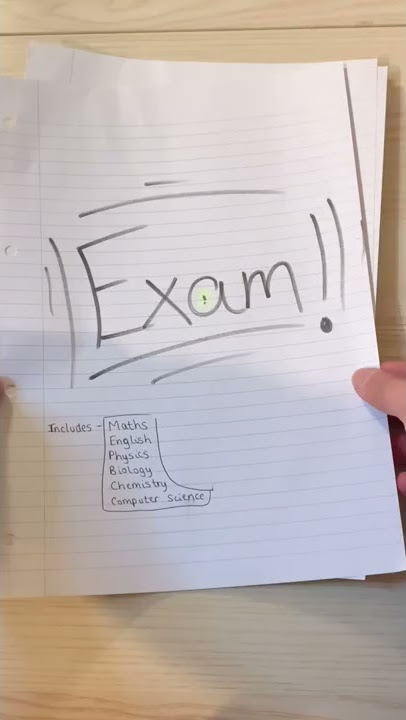 Exam!!
Includes - Maths
English
Physics
Biology
Chemistry
Computer Science